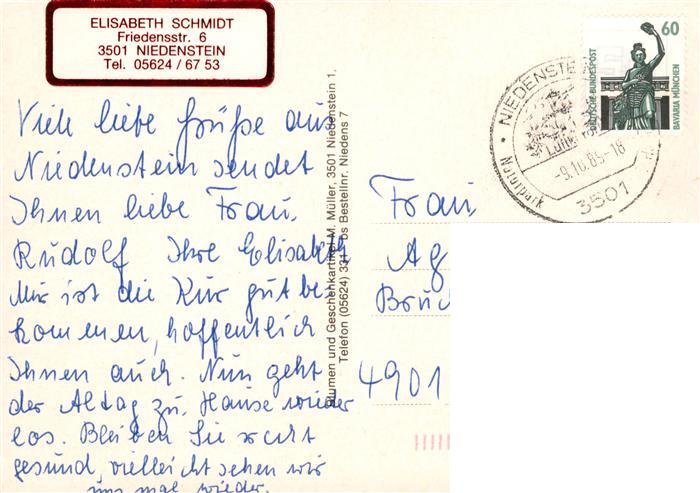 ELISABETH SCHMIDT
Friedensstr. 6
3501 NIEDENSTEIN
Tel. 05624 / 67 53
60
DEUTSCHE BUNDESPOST
BAVARIA MÜNCHEN
NIEDENSTEIN
Naturpark
3501
Viele liebe Grüße aus
Niedenstein sendet
Ihnen liebe Frau
Rudolf Ihre Elisabeth
Mir ist die Kur gut be-
kommen, hoffentlich
Ihnen auch. Nun geht
der Altag zu Hause wieder
los. Bleiben Sie recht
gesund, vielleicht sehen wir
uns mal wieder.
Blumen und Geschenkartikel M. Müller, 3501 Niedenstein 1,
Telefon (05624) 331 os Bestellnr. Niedens 7
Frau
Ag
Bruc
4901